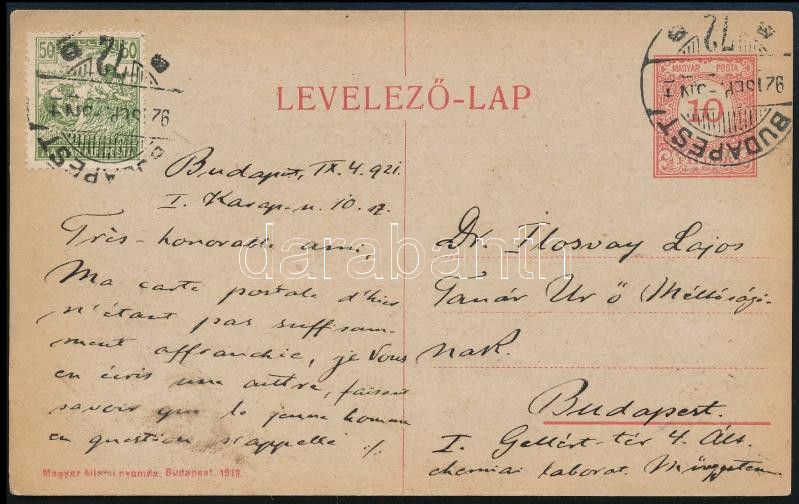 50 50
MAGYAR KIR. POSTA
72
921 SEP
BUDAPEST
LEVELEZŐ-LAP
MAGYAR POSTA
10
72
921 SEP
BUDAPEST
Budapest, IX. 4. 921.
I. Karap-u. 10. sz.
Très-honorable ami,
Ma carte postale d'hier
n'étant pas suffisam-
ment affranchie, je Vous
en écris une autre, faisant
savoir que le jeune homme
en question s'appelle ./.
Dr. Ilosvay Lajos
Tanár Úr ő Méltóságá-
nak.
Budapest.
I. Gellért-tér 4. Ált.
chemiai laborat. Műegyetem
Magyar állami nyomda, Budapest. 1919.
darabanth